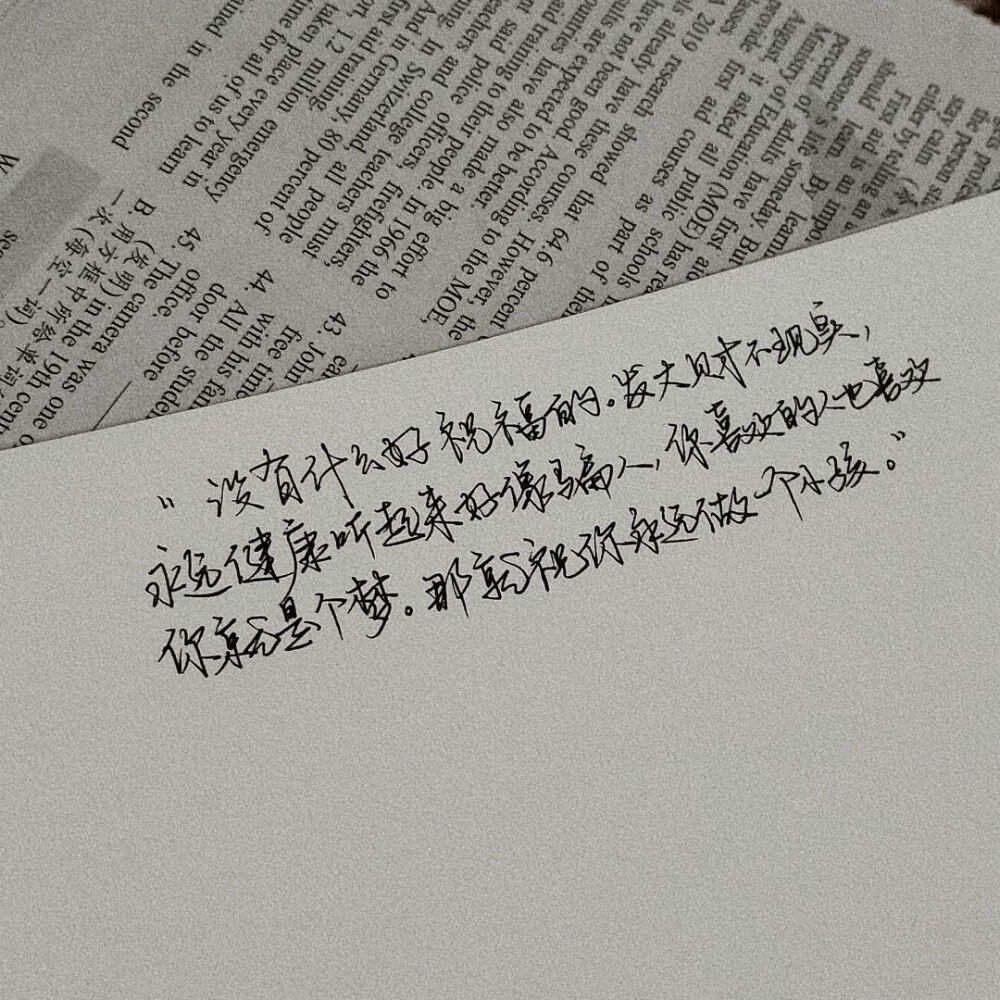 "没有什么好祝福的。发大财不现实,
永远健康听起来好像骗人,你喜欢的人也喜欢
你就是个梦。那就祝你永远做一个小孩。"
the person s
say calm
ender by telling an
First aid is an impo
should learn
someone's life someday. Bu
percent of adults have first
Ministry of Education (MOE) has re
August, it asked all public schools
provide first aid courses as part of the
2019 research showed that 64.6 percent
already have these courses. However, the
have not been good. According to the MOE,
are expected to be better.
aid training have also made a big effort to
said to their people. In 1966 the
police officers, firefighters,
teachers and college teachers must
And in Switzerland, all people
first aid training. In Germany, 80 percent of
1.2 million emergency
taken place every year in
time for all of us to learn
in the second
43. John
free time
with his fa
44. All the studen
door before
office
45. The camera was one o
(发明) in the 19th cent
B. 用方框中所给单词
一次(每空一词)。